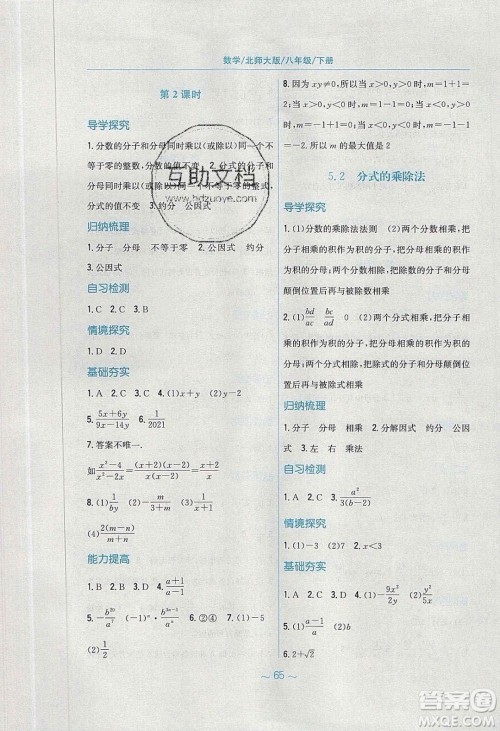 数学/北师大版/八年级/下册
第2课时
导学探究
1.分数的分子和分母同时乘以(或除以)同一个不
等于零的整数,分数的值不变 2.分式的分子和
分母同时乘以(或除以)同一个不等于零的整式,
分式的值不变 3.约分 公因式
归纳梳理
1.分子 分母 不等于零 2.公因式 约分
3.公因式
自习检测
1.C 2.C 3.B
情境探究
1.B 2.D
基础夯实
1.A 2.C 3.A 4.(1)x+y (2)y−2
5.(5x+6y)/(9x−14y) 6.1/2021
7.答案不唯一.
如(x²−4)/(x−2)=(x+2)(x−2)/(x−2)=x+2
8.(1)1/by (2)−m/(3+m)
(4)2(m−n)/(m+n)
能力提高
1.B 2.D 3.B 4.(a+1)/(a−1)
6.②④ 7.(1)−5
(2)1/2
8.因为xy≠0,所以当x>0,y>0时,m=1+1=
2;当x>0,y<0时,m=1−1=0;当x<0,y>0
时,m=−1+1=0;当x<0,y<0时,m=−1−1
=−2;所以m的最大值是2
5.2 分式的乘除法
导学探究
1.(1)分数的乘除法法则 (2)两个分数相乘,把
分子相乘的积作为积的分子,把分母相乘的积作
为积的分母;两个分数相除,把除数的分子和分母
颠倒位置后再与被除数相乘
2.(1)bd/ac bc/ad (2)两个分式相乘,把分子相乘
的积作为积的分子,把分母相乘的积作为积的分
母;两个分式相除,把除式的分子和分母颠倒位置
后再与被除式相乘
归纳梳理
1.分子 分母 相乘 2.分解因式 约分 公因
式 3.左 右 乘法
自习检测
1.A 2.C 3.a²/3(b−2)
情境探究
1.(1)−3 (2)7 2.x<3
基础夯实
1.A 2.D 3.D 4.(1)−9x²/2y (2)9x²/5y²
5.(1)(a+1)/a (2)b
6.2+√2
~65~
互助文档
www.hd2zuoye.com
作业精灵
MXQE.COM